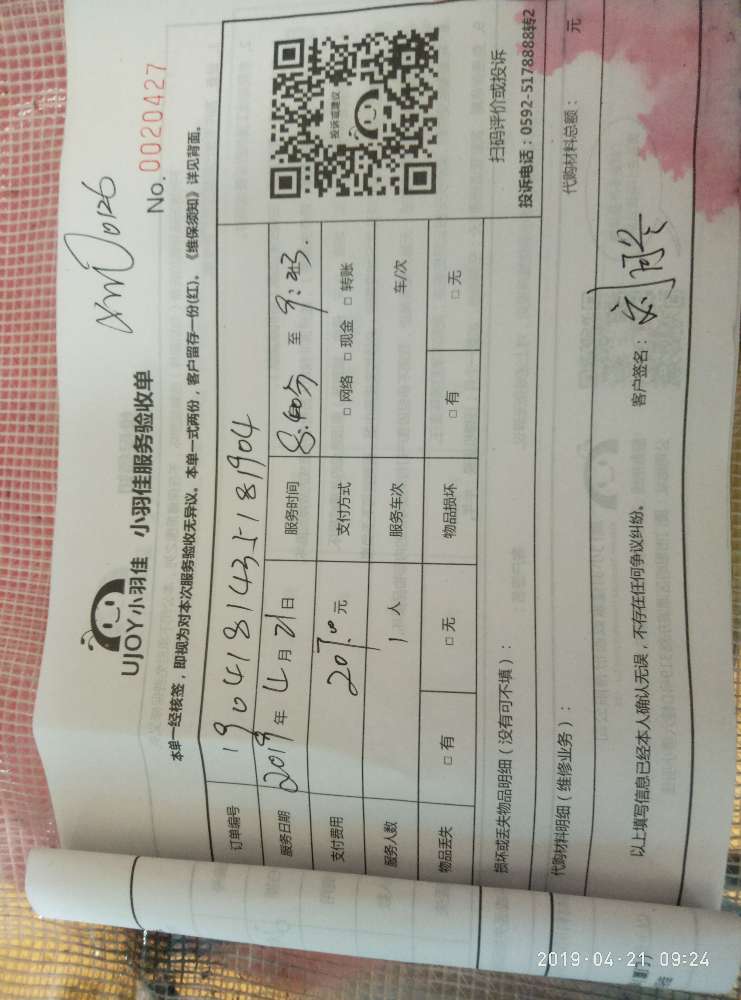 xmJ0126
UJOY小羽佳 小羽佳服务验收单
No. 0020427
本单一经核签，即视为对本次服务验收无异议。本单一式两份，客户留存一份(红)。《维保须知》详见背面。
订单编号 190418143518 1904
服务日期 2019 年 4 月 21 日 服务时间 至 9:
支付费用 207.00 元 支付方式 □ 网络 □ 现金 □ 转账
服务人数 1 人 服务车次 车/次
物品丢失 □ 有 □ 无 物品损坏 □ 有 □ 无
投诉或建议
扫码评价或投诉
投诉电话：0592-5178888转2
损坏或丢失物品明细（没有可不填）：
代购材料明细（维修业务）： 代购材料总额： 元
以上填写信息已经本人确认无误，不存在任何争议纠纷。 客户签名：
2019-04-21 09:24